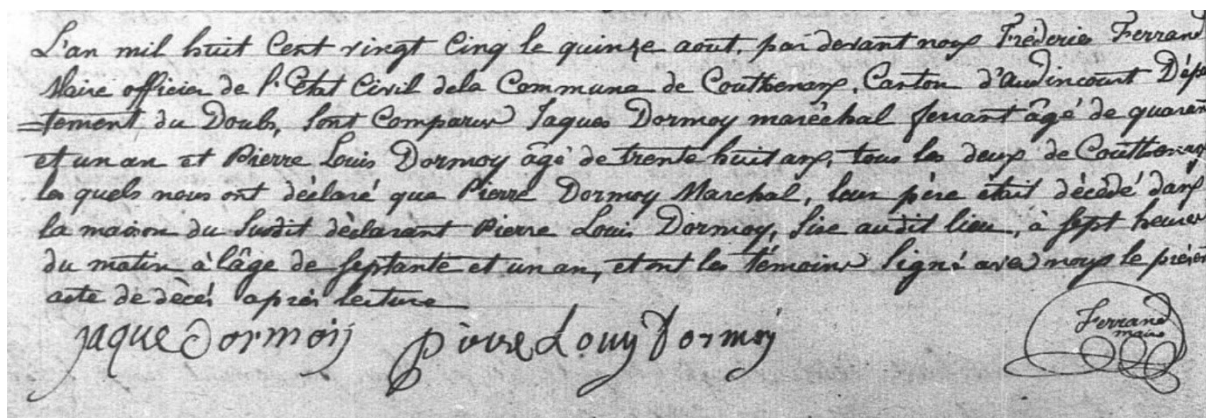 L'an mil huit Cent vingt Cinq le quinze aout, par devant nous Fréderic Ferrand
Maire officier de l'Etat Civil dela Commune de Couthenans, Canton d'Audincourt Dépa
tement du Doubs, sont Comparus Jaques Dormoy marèchal ferrant âgé de quaran
et un an et Pierre Louis Dormoy âgé de trente huit ans, tous les deux de Couthenans
les quels nous ont déclaré que Pierre Dormoy Marchal, leur père ètait dècédé dans
la maison du susdit dèclarant Pierre Louis Dormoy, sise audit lieu, à sept heures
du matin à lâge de septante et un an, et ont les témoins signé avec nous le présen
acte de dècès après lecture
jaque Dormoij Pierre Louy Dormoij Ferrand
maire